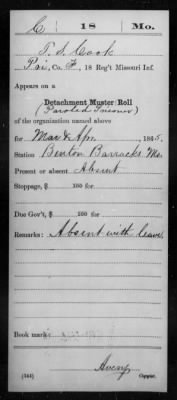 C | 18 | Mo.
T. J. Cook
Pvt., Co. F, 18 Reg't Missouri Inf.
Appears on a
Detachment Muster Roll
(Paroled Prisoner)
of the organization named above
for Mar & Apr, 1865.
Station Benton Barracks Mo.
Present or absent Absent
Stoppage, $ 100 for
Due Gov't, $ 100 for
Remarks: Absent with leave.
Book mark:
(544)
Avery
Copyist.